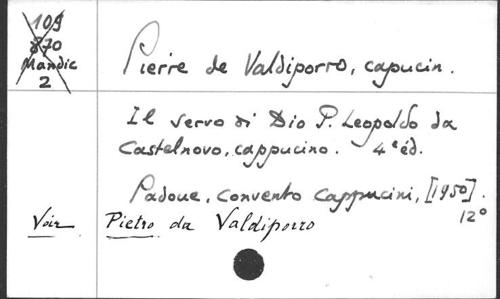 109
870
Mandic
2
Pierre de Valdiporro, capucin.
Il servo di Dio P. Leopoldo da
Castelnovo, cappucino. 4e éd.
Padoue, Convento Cappucini, [1950].
12°
Voir Pietro da Valdiporro